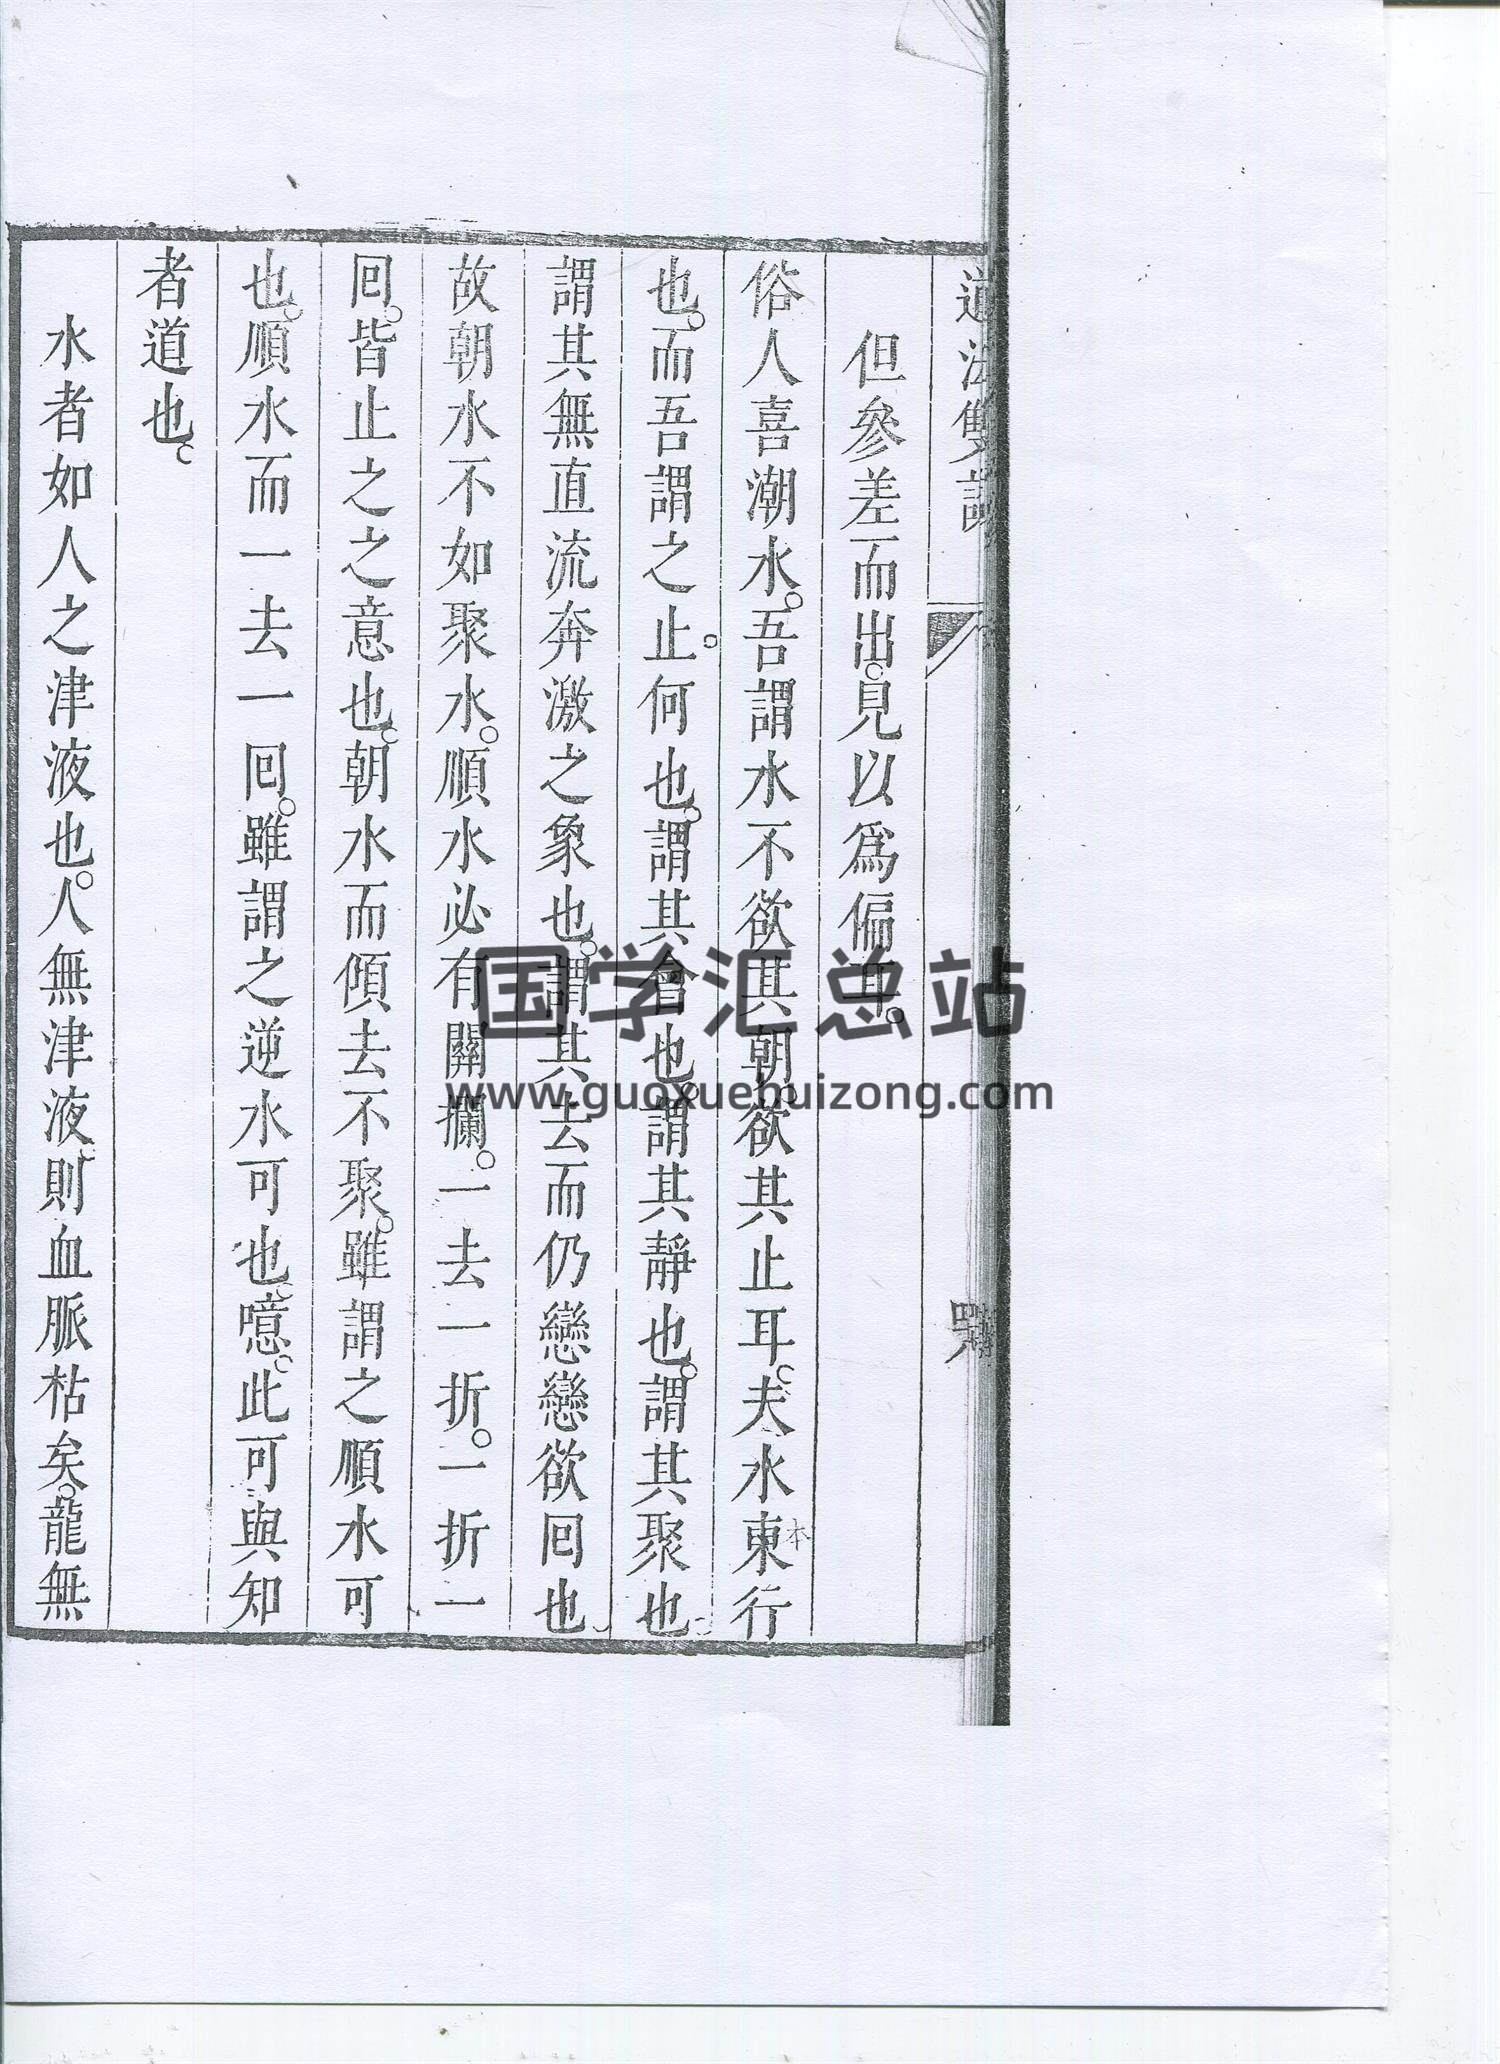 道法雙譚
但參差而出見以爲偏耳。
俗人喜潮水。吾謂水不欲其朝。欲其止耳。夫水東行
本
也。而吾謂之止。何也。謂其會也。謂其靜也。謂其聚也。
謂其無直流奔激之象也。謂其去而仍戀戀欲回也。
故朝水不如聚水。順水必有關攔。一去一折。一折一
回。皆止之之意也。朝水而傾去不聚。雖謂之順水可
也。順水而一去一回。雖謂之逆水可也。噫。此可與知
者道也。
水者如人之津液也。人無津液。則血脈枯矣。龍無
国学汇总站
www.guoxuehuizong.com